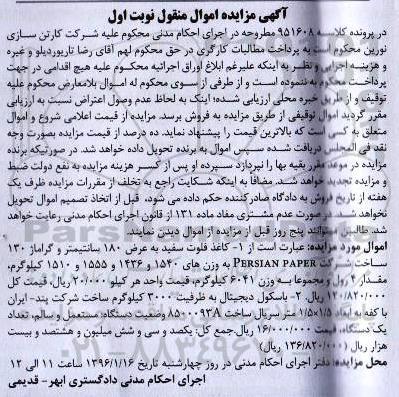 آگهی مزایده اموال منقول نوبت اول
در پرونده کلاسه ۹۵۱۶۰۸ مطروحه در اجرای احکام مدنی محکوم علیه شرکت کارتن سازی
نورین محکوم است به پرداخت مطالبات کارگری در حق محکوم لهم آقای رضا تاروردیلو و غیره
و هزینه اجرایی و نظر به اینکه علیرغم ابلاغ اوراق اجرائیه محکوم علیه هیچ اقدامی در جهت
پرداخت محکوم به ننموده است و از طرفی از سوی محکوم له اموال بلامعارض محکوم علیه
توقیف و از طریق خبره محلی ارزیابی شده؛ اینک به لحاظ عدم وصول اعتراض نسبت به ارزیابی
مقرر گردید اموال توقیفی از طریق مزایده به فروش برسد. مزایده از قیمت اعلامی شروع و اموال
متعلق به کسی است که بالاترین قیمت را پیشنهاد نماید. ده درصد از قیمت مزایده بصورت وجه
نقد فی المجلس دریافت شده سپس اموال به برنده تحویل داده خواهد شد. در صورتیکه برنده
مزایده در موعد مقرر بقیه بها را نپردازد سپرده او پس از کسر هزینه مزایده به نفع دولت ضبط
و مزایده تجدید خواهد شد. مضافا به اینکه شکایت راجع به تخلف از مقررات مزایده ظرف یک
هفته از تاریخ فروش به دادگاه صادرکننده حکم داده می شود، قبل از اتخاذ تصمیم اموال تحویل
نخواهد شد در صورت عدم مشتری مفاد ماده ۱۳۱ از قانون اجرای احکام مدنی رعایت خواهد
شد. طالبین میتوانند پنج روز قبل از مزایده از اموال دیدن نمایند.
اموال مورد مزایده: عبارت است از ۱- کاغذ فلوت سفید به عرض ۱۸۰ سانتیمتر و گراماژ ۱۳۰
ساخت شرکت PERSIAN PAPER به وزن های ۱۵۴۰ و ۱۴۳۶ و ۱۵۵۵ و ۱۵۱۰ کیلوگرم،
مقدار ۴ رول و مجموعا به وزن ۶۰۴۱ کیلوگرم، قیمت واحد هر کیلو ۲۰/۰۰۰ ریال، قیمت کل
۱۲۰/۸۲۰/۰۰۰ ریال. ۲- باسکول دیجیتال به ظرفیت ۳۰۰۰ کیلوگرم ساخت شرکت پند- ایران
با کفه به ابعاد ۱/۵×۱/۵ متر سریال ساخت وضعیت دستگاه: مستعمل و سالم، تعداد
یک دستگاه، قیمت ۱۶/۰۰۰/۰۰۰ ریال. جمع کل: یکصد و سی و شش میلیون و هشتصد و بیست
هزار ریال (۱۳۶/۸۲۰/۰۰۰ ریال)
محل مزایده: دفتر اجرای احکام مدنی در روز چهارشنبه تاریخ ۱۳۹۶/۱/۱۶ ساعت ۱۱ الی ۱۲
اجرای احکام مدنی دادگستری ابهر- قدیمی